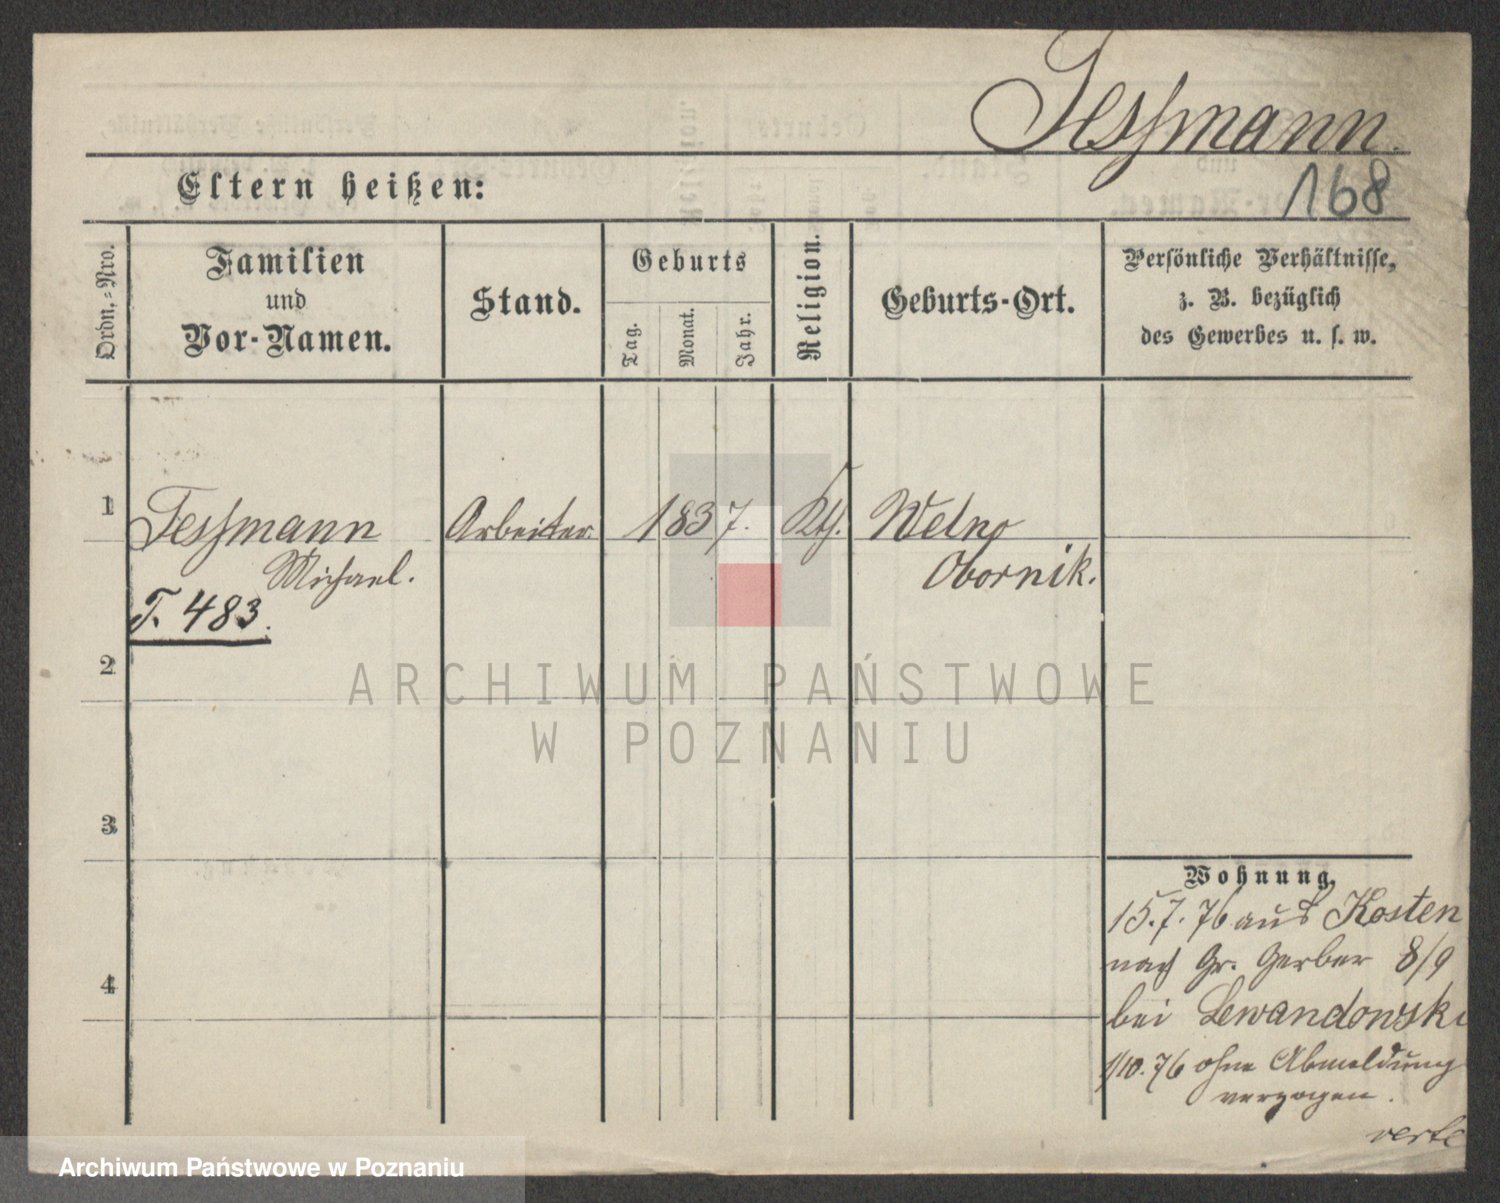 Tessmann.
168
Eltern heißen:
Ordn.=Nro.
Familien
und
Vor-Namen.
Stand.
Geburts
Tag.
Monat.
Jahr.
Religion.
Geburts-Ort.
Persönliche Verhältnisse,
z. B. bezüglich
des Gewerbes u. s. w.
1
Tessmann
Michael.
T. 483.
Arbeiter
1837.
Kth.
Welno
Obornik.
2
3
4
Wohnung.
15.7.76 aus Kosten
nach Gr. Gerber 8/9
bei Lewandowski
1/10.76 ohne Abmeldung
verzogen.
verte
ARCHIWUM PAŃSTWOWE
W POZNANIU
Archiwum Państwowe w Poznaniu